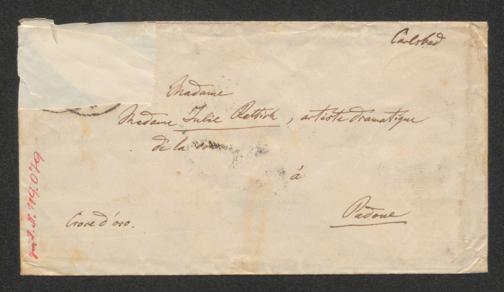 Carlsbad
Madame
Madame Julie Rettich, artiste dramatique
de la cour
à
Padoue
Croce d'oro.
zu I. N. 119.079